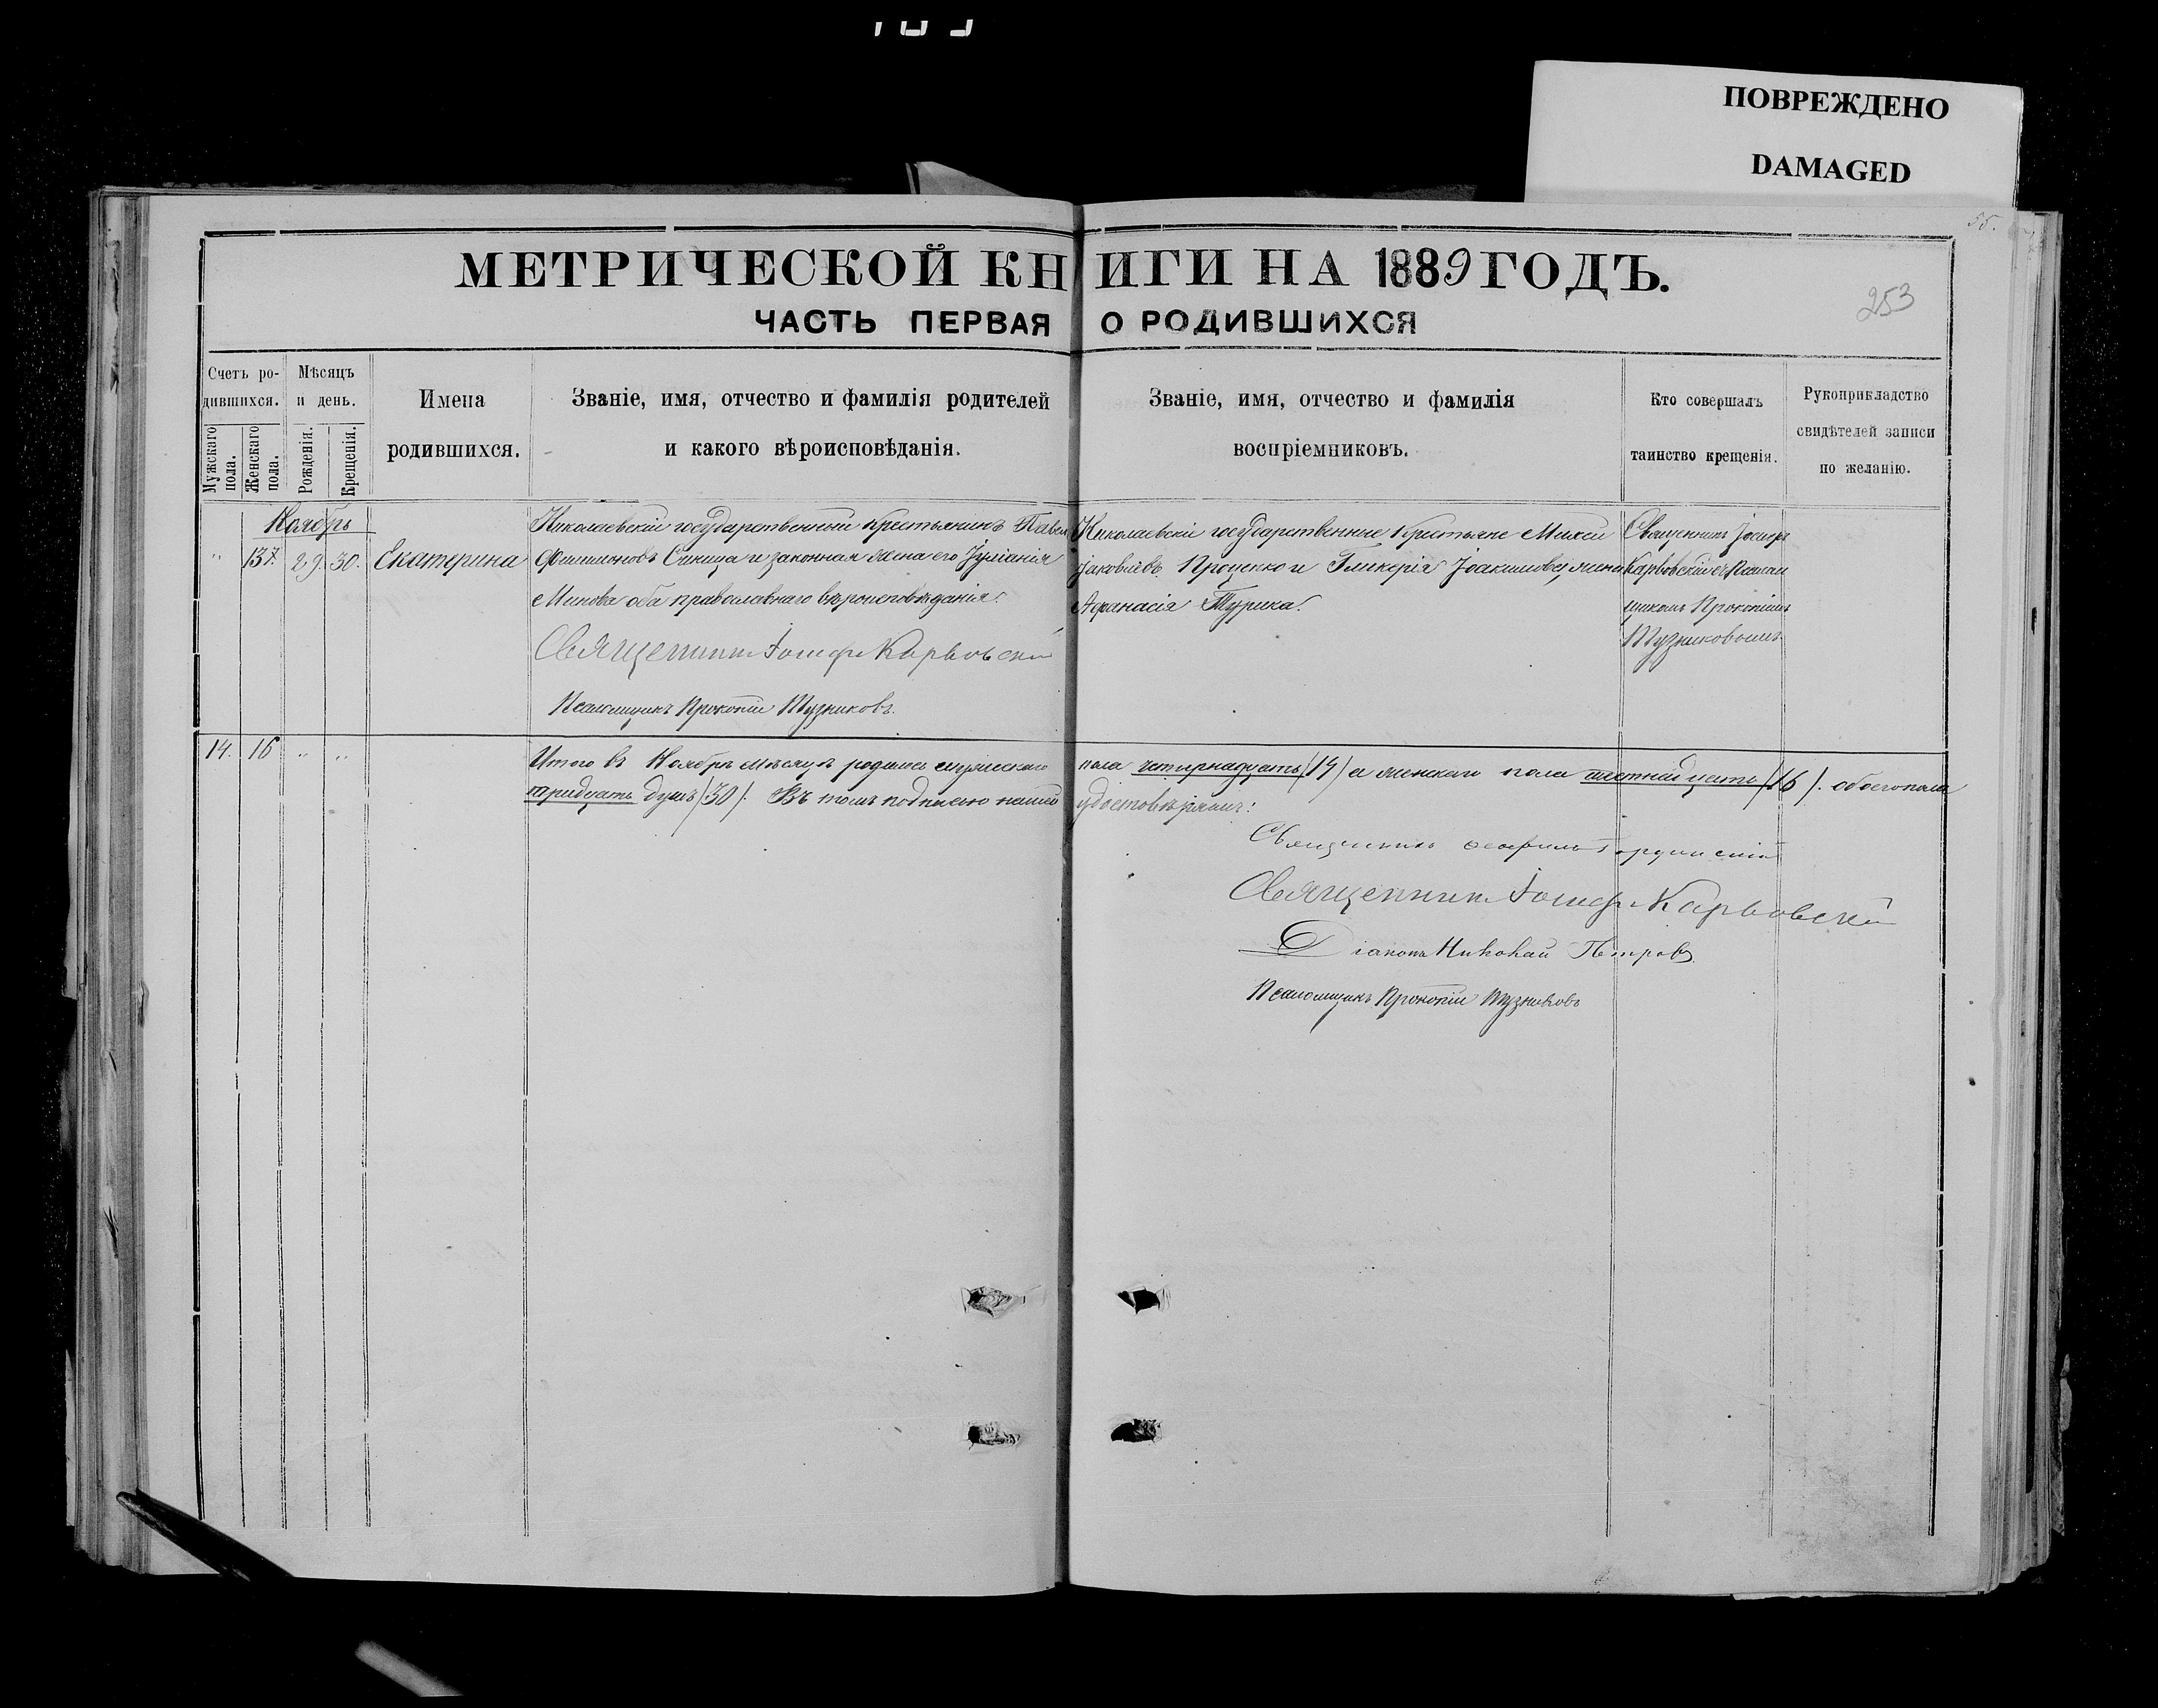 ПОВРЕЖДЕНО
DAMAGED
55.
253
МЕТРИЧЕСКОЙ КНИГИ НА 1889 ГОДЪ.
ЧАСТЬ ПЕРВАЯ О РОДИВШИХСЯ
Счетъ ро-
дившихся.
Мужскаго пола.
Женскаго пола.
Мѣсяцъ
и день.
Рожденія.
Крещенія.
Имена
родившихся.
Званіе, имя, отчество и фамилія родителей
и какого вѣроисповѣданія.
Званіе, имя, отчество и фамилія
воспріемниковъ.
Кто совершалъ
таинство крещенія.
Рукоприкладство
свидѣтелей записи
по желанію.
Ноябрь
137. 29. 30. Екатерина
Николаевскій государственный крестьянинъ Павелъ
Филимоновъ Синица и законная жена его Іуліанія
Минова оба православнаго вѣроисповѣданія.
Священникъ Іосифъ Карвовскій
Псаломщикъ Прокопій Тузниковъ.
Николаевскіе государственные крестьяне Михей
Іаковлевъ Проценко и Гликерія Іоакимова жена
Афанасія Турика.
Священникъ Іосифъ
Карвовскій съ Псалом
щикомъ Прокопіемъ
Тузниковымъ
14. 16 " "
Итого въ Ноябрѣ мѣсяцѣ родилось мужескаго пола четырнадцать (14) а женскаго пола шестнадцать (16). обоего пола
тридцать душъ (30). Въ томъ подписью нашею удостовѣряемъ:
Священникъ
Священникъ Іосифъ Карвовскій
Діаконъ Николай Петровъ
Псаломщикъ Прокопій Тузниковъ